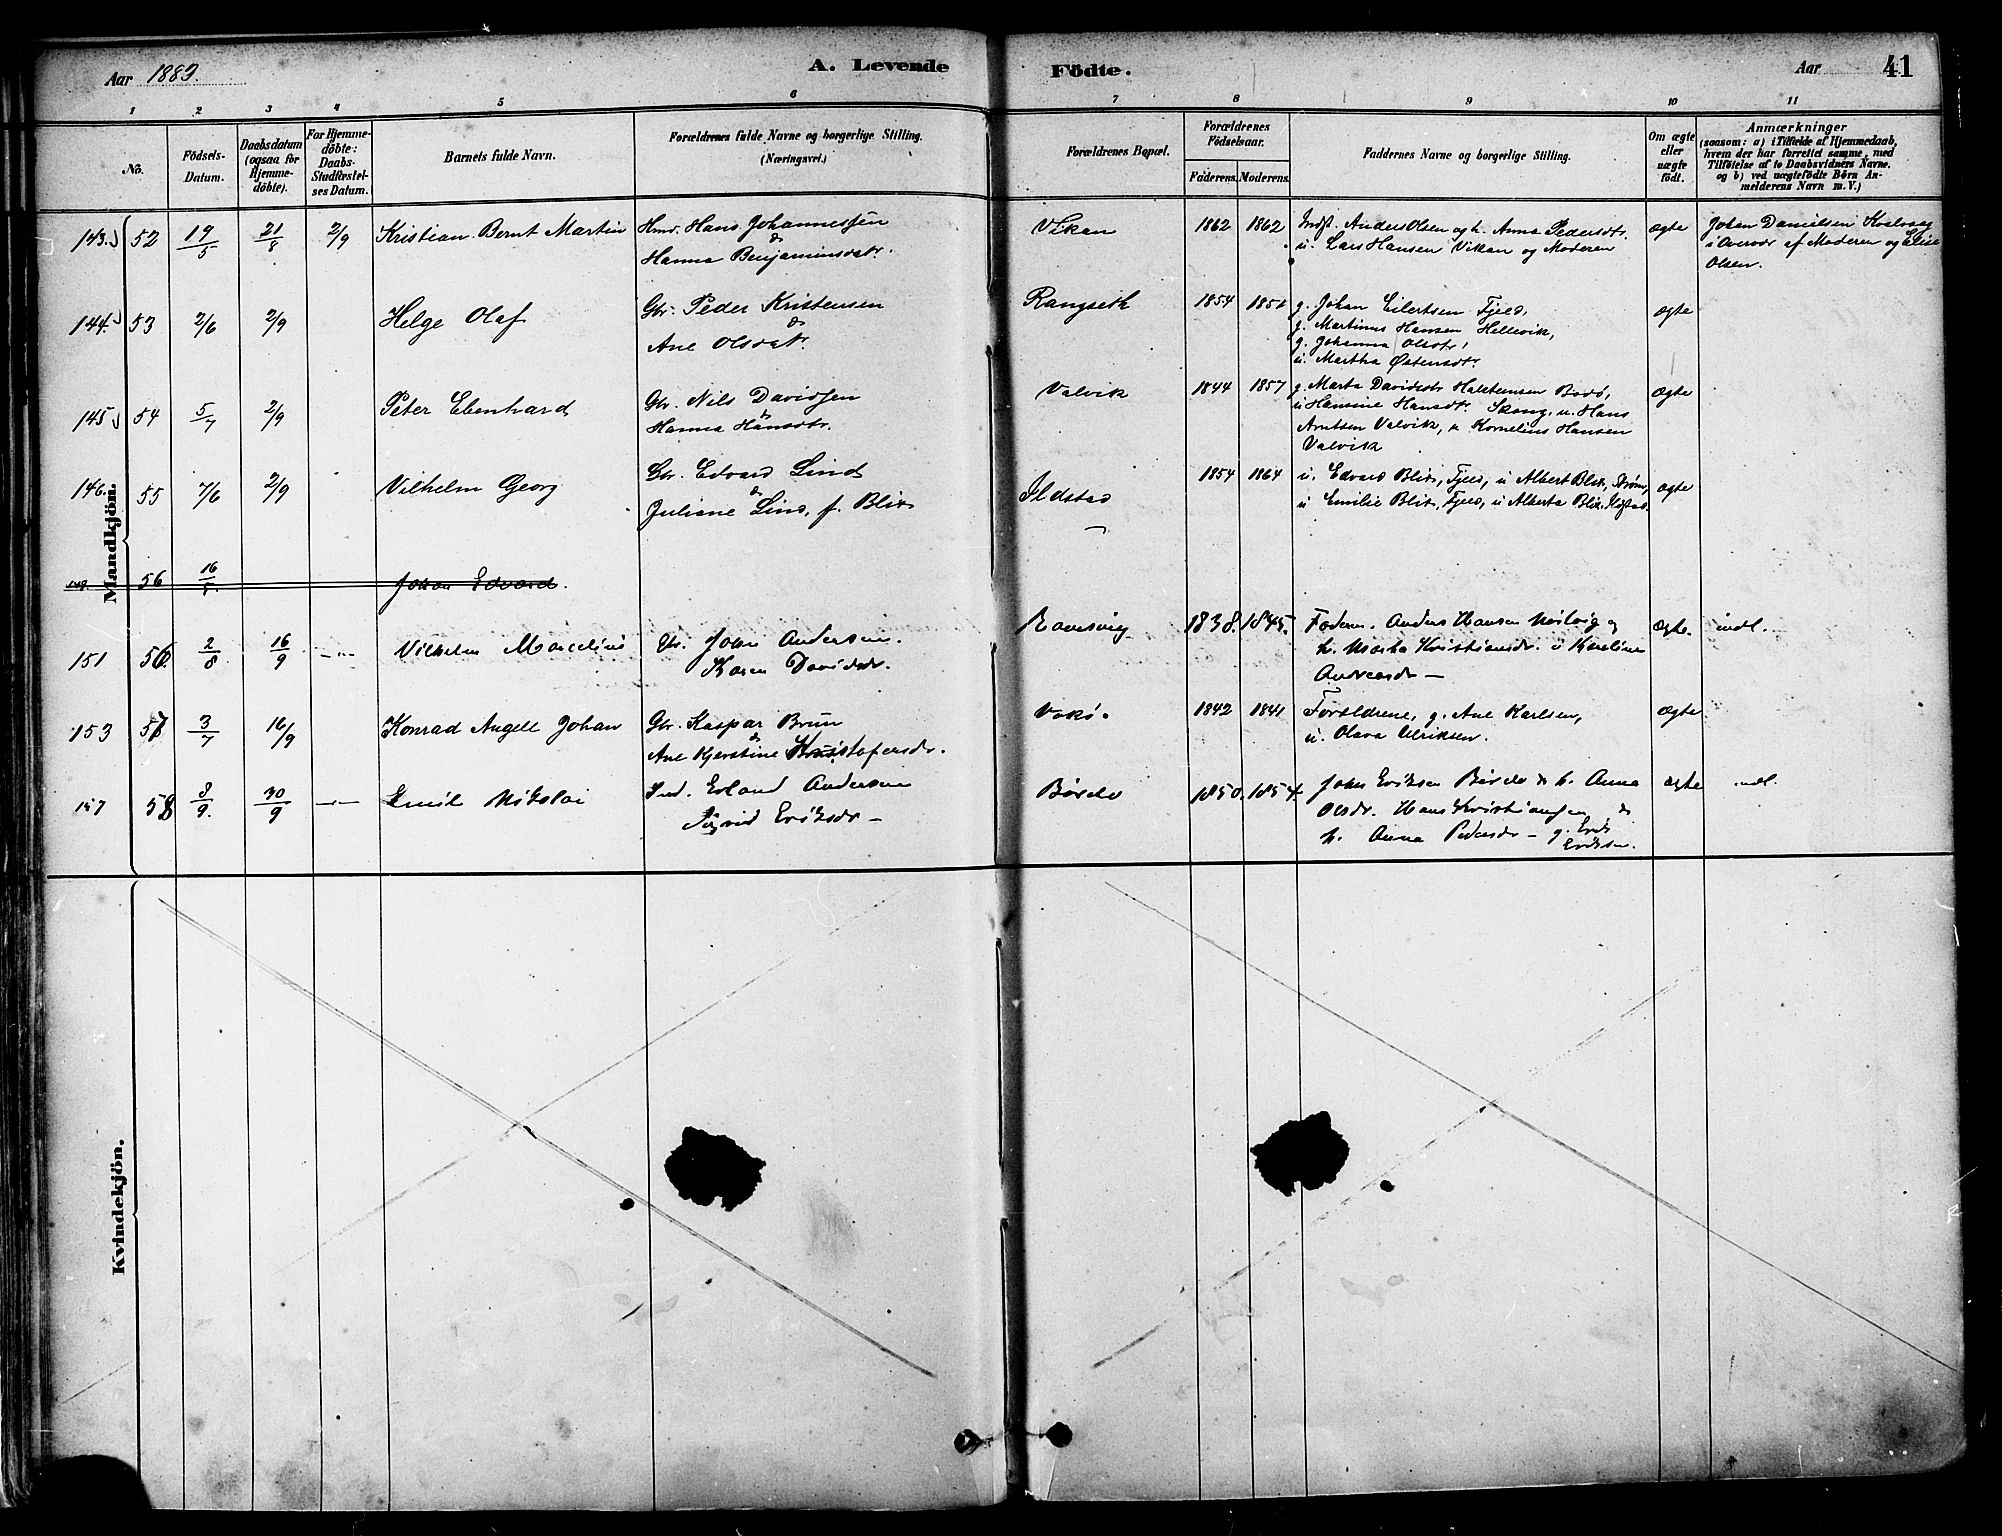 Aar 1883.
A. Levende Födte.
Aar
41
1 2 3 4 5 6 7 8 9 10 11
No.
Födsels-
Datum.
Daabsdatum
(ogsaa for
Hjemme-
döbte).
For Hjemme-
döbte:
Daabs-
Stadfæstel-
ses Datum.
Barnets fulde Navn.
Forældrenes fulde Navne og borgerlige Stilling.
(Næringsvei.)
Forældrenes Bopæl.
Forældrenes
Födselsaar.
Faderens.
Moderens.
Faddernes Navne og borgerlige Stilling.
Om ægte
eller
uægte
födt.
Anmærkninger
(saasom: a) i Tilfælde af Hjemmedaab,
hvem der har forrettet samme, med
Tilföielse af to Daabsvidners Navne.
og b) ved uægtefödte Börn An-
melderens Navn m. V.)
Mandkjön.
143. 52 19/5 21/8 2/9 Kristian Bernt Martin Hmd. Hans Johannessen
& Hanna Benjaminsdtr.
Vikan 1862 1862 Indst. Anders Olsen og h. Anna Pedersdtr.
u. Lars Hansen Vikan og Moderen
ægte
Johan Danielsen Kvalvaag
i Overvær af Moderen og Elise
Olsen.
144. 53 2/6 2/9 Helge Olaf Gbr. Peder Kristensen
& Ane Olsdatr.
Rangseth 1854 g. Johan Eilertsen Fjeld,
g. Martinus Hansen Hellevik,
g. Johanna Olsdtr,
u. Martha Østensdtr
ægte
145 54 5/7 2/9 Peter Ebenhard Gbr. Nils Davidsen
& Hanna Hansdtr.
Valvik 1844 1857 g. Marta Davidsdtr Halstensen Bodø,
u Hansine Hansdtr. Skong, u. Hans
Arntsen Valvik, u Kornelius Hansen
Valvik
ægte
146. 55 7/6 2/9 Vilhelm Georg Gbr. Edvard Lind
& Juliane Lind, f. Blix
Ildstad 1854 1864 u. Edvard Blix, Fjeld, u Albert Blix, Strøm,
u Emilie Blix, Fjeld, u Alberta Blix,
ægte
149 56 16/5 Johan Edvard.
151 56 2/8 16/9 Vilhelm Marcelius Gbr. John Andersen.
Karen Davidsdr.
1838. 1845. Faderen. Anders Hansen og
h. Marta Kristiansdr. u Karoline
Andreasdr —
ægte. indl.
153 57 3/7 16/9 Konrad Angell Johan Gbr. Kaspar Brun
& Ane Kjerstine Kristofersdr.
1842 1841 Forældrene, g. Ane Karlsen,
u. Olava Ulriksen.
ægte
157 58 3/9. 30/9 Emil Nikolai Ind. Erland Andersen
Sigrid Eriksdr —
1850. 1854. John Eriksen & h. Anna
Olsdr. Hans Kristiansen &
h. Anna Pedersdr — g. Erik
Eriksen.
ægte indl.
Kvindekjön.